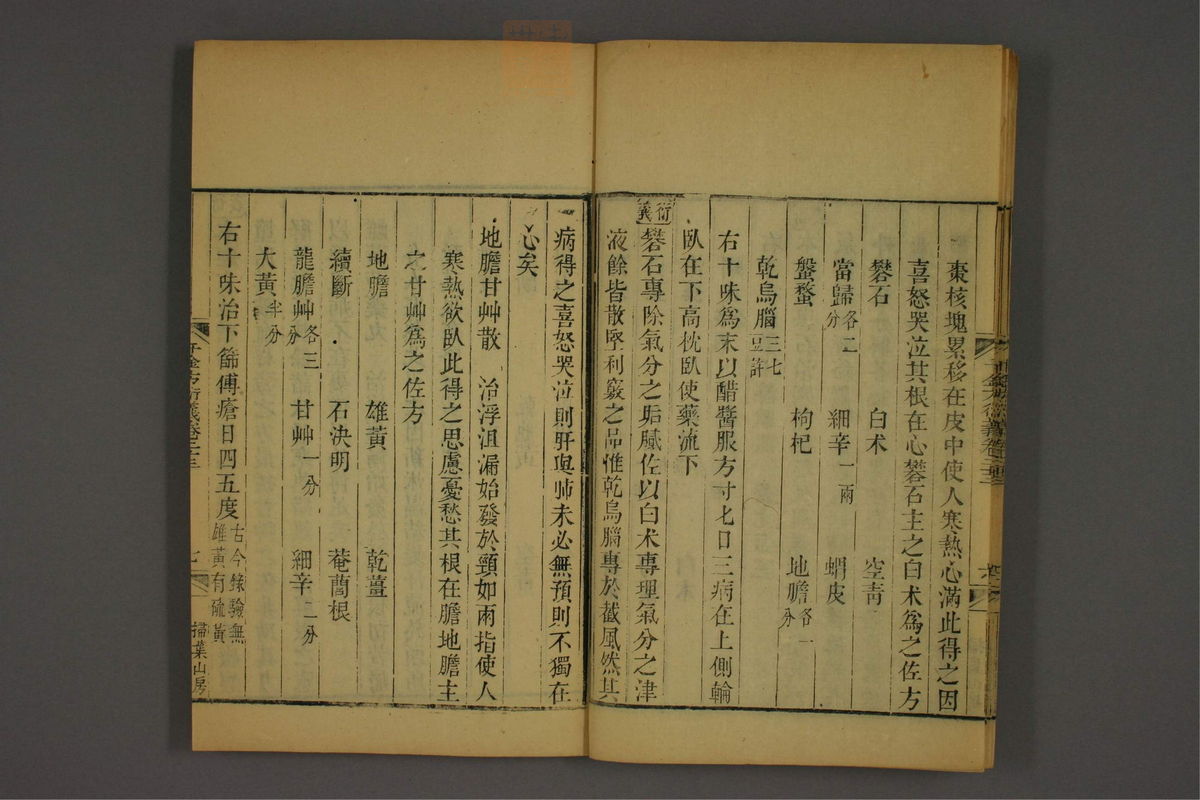 棗核塊累移在皮中使人寒熱心滿此得之因
喜怒哭泣其根在心礬石主之白术爲之佐方
礬石 白术 空青
當歸各二分 細辛一兩 蝟皮
螌蝥 枸杞 地膽各一分
乾烏腦三七豆許
右十味爲末以醋醬服方寸匕日三病在上側輪
臥在下高枕臥使藥流下
衍義
礬石專除氣分之垢膩佐以白术專理氣分之津
液餘皆散堅利竅之品惟乾烏腦專於截風然其
病得之喜怒哭泣則肝與肺未必無預則不獨在
心矣
地膽甘艸散 治浮沮漏始發於頸如兩指使人
寒熱欲臥此得之思慮憂愁其根在膽地膽主
之甘艸爲之佐方
地膽 雄黃 乾薑
續斷 石決明 菴䕡根
龍膽艸各三分 甘艸一分 細辛二分
大黃半分
右十味治下篩傅瘡日四五度古今錄驗無雄黃有硫黃
千金方衍義卷二十三
七
掃葉山房